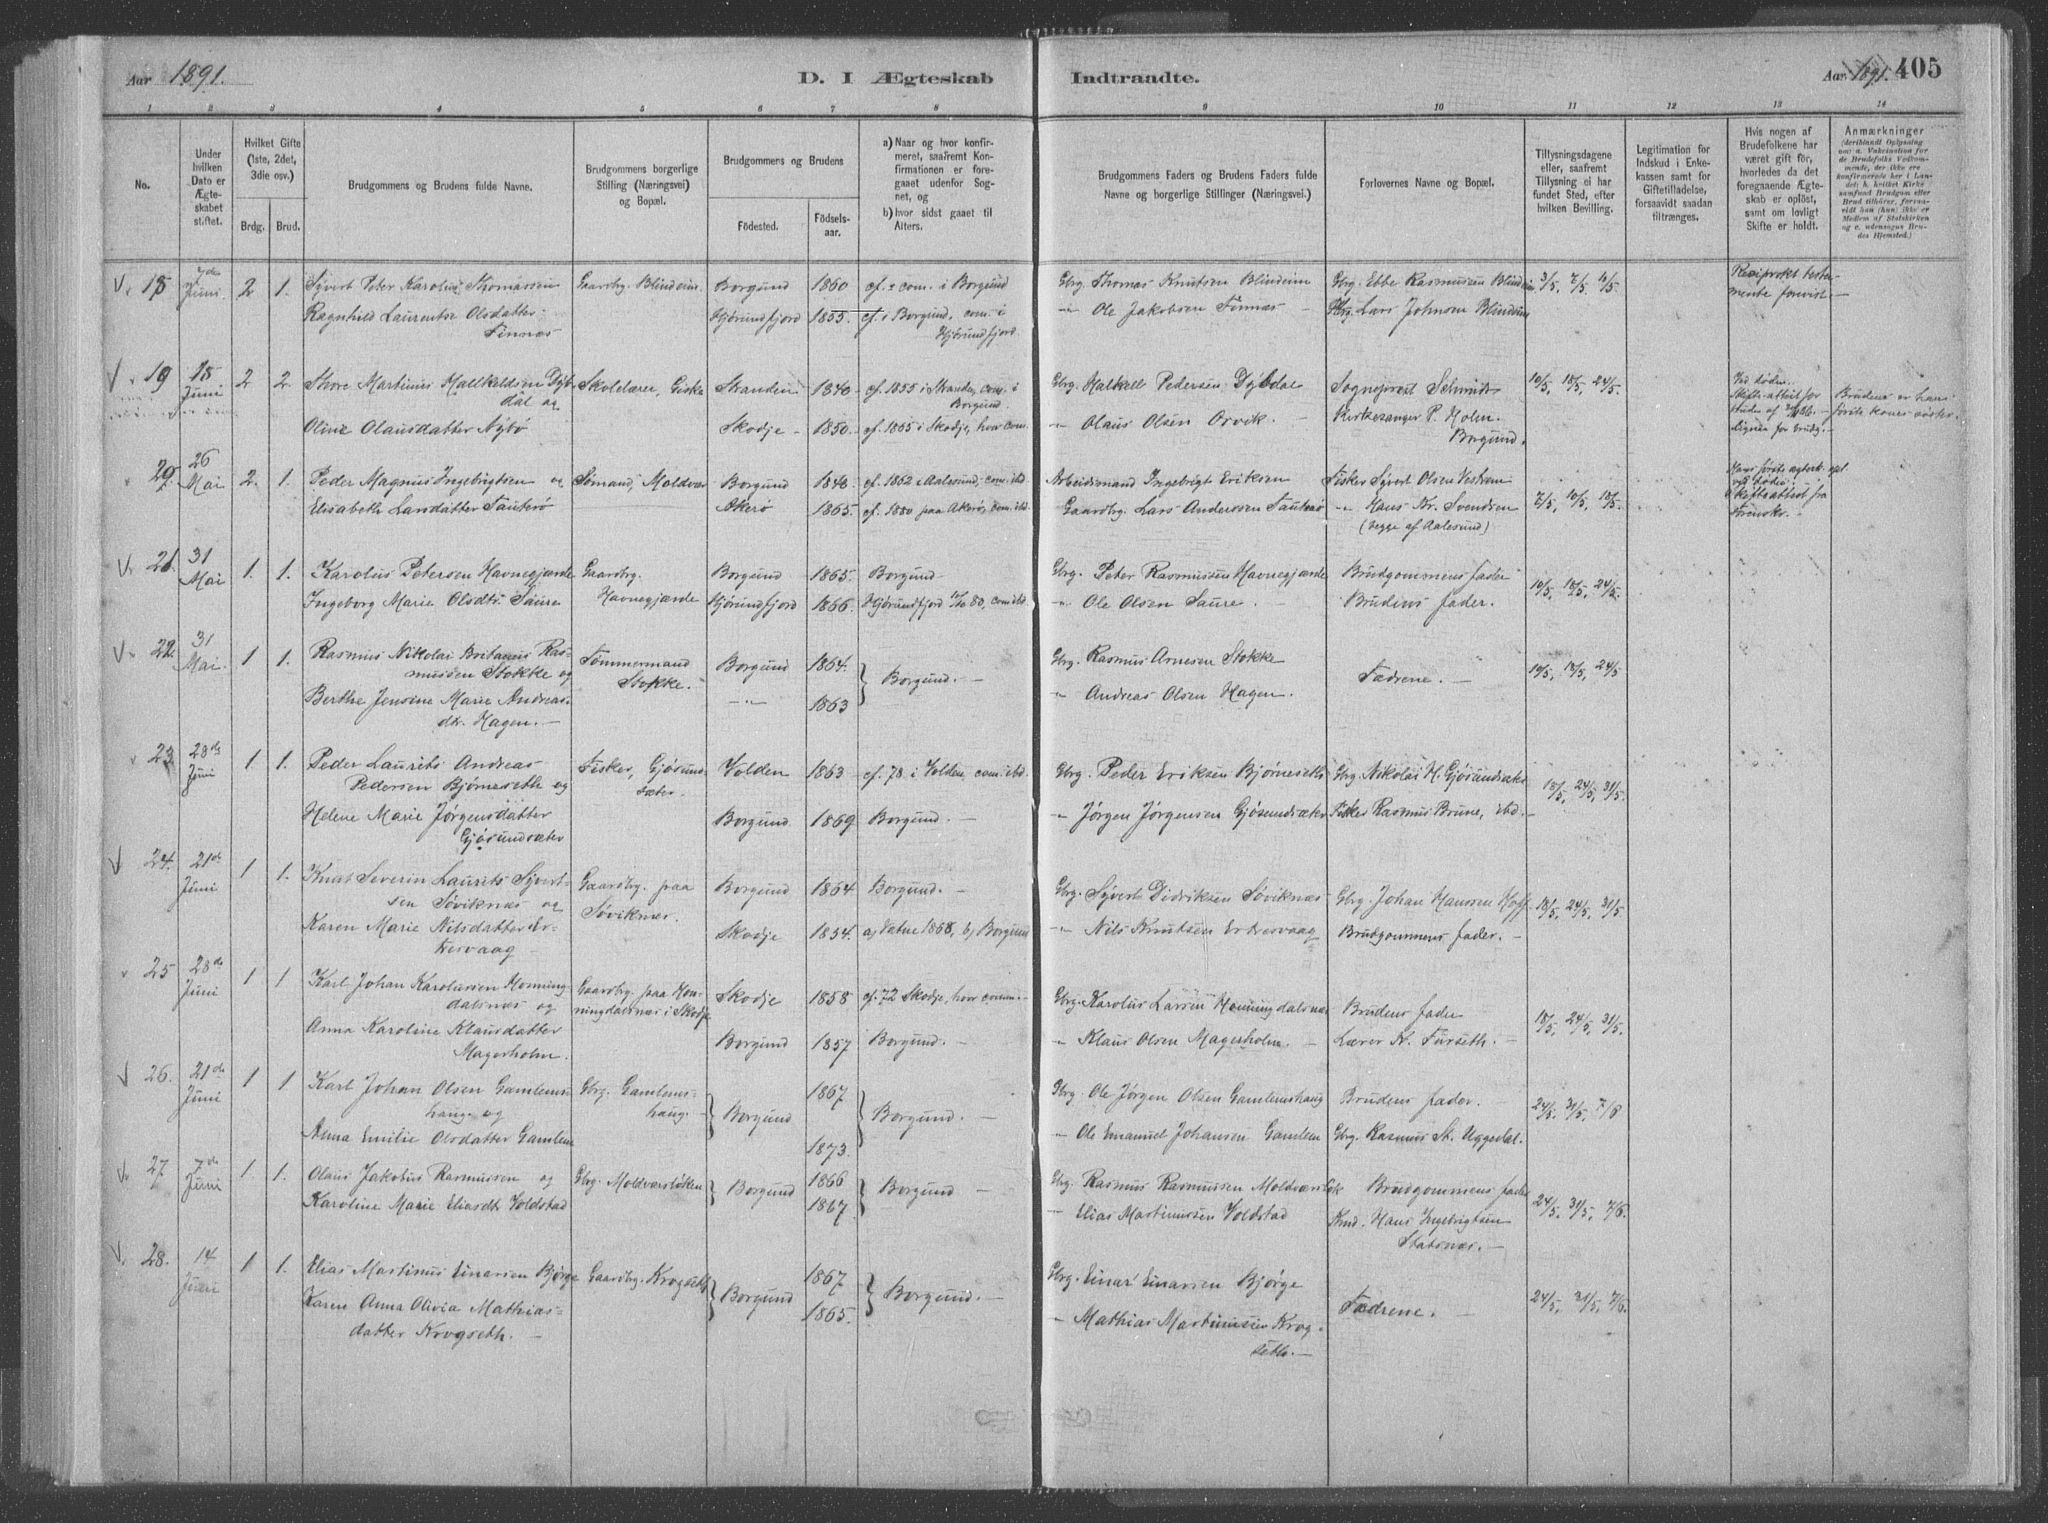 Aar 1891.
D. I Ægteskab
Indtraadte.
Aar 1891. 405
1 2 3 4 5 6 7 8 9 10 11 12 13 14
No.
Under hvilken Dato er Ægteskabet stiftet.
Hvilket Gifte (1ste, 2det, 3die osv.)
Brdg. Brud.
Brudgommens og Brudens fulde Navne.
Brudgommens borgerlige Stilling (Næringsvei) og Bopæl.
Brudgommens og Brudens
Födested. Födsels-aar.
a) Naar og hvor konfirmeret, saafremt Konfirmationen er foregaaet udenfor Sognet, og
b) hvor sidst gaaet til Alters.
Brudgommens Faders og Brudens Faders fulde Navne og borgerlige Stillinger (Næringsvei.)
Forlovernes Navne og Bopæl.
Tillysningsdagene eller, saafremt Tillysning ei har fundet Sted, efter hvilken Bevilling.
Legitimation for Indskud i Enkekassen samt for Giftetilladelse, forsaavidt saadan tiltrænges.
Hvis nogen af Brudefolkene har været gift för, hvorledes da det foregaaende Ægteskab er oplöst, samt om lovligt Skifte er holdt.
Anmærkninger
18 7de Juni 2 1. Sivert Peter Karolius Thomassen
Ragnhild Laurentse Olsdatter Finnæs
Gaardbg. Blindeim.
Borgund 1860 cf. & com. i Borgund
Hjørundfjord 1855. cf. i Borgund, com. i Hjørundfjord.
Gbrg. Thomas Knutsen Blindeim
" Ole Jakobsen Finnæs
Gbrg. Ebbe Rasmussen Blindeim
Gbrg. Lars Johnsen Blindeim
3/5, 7/5,
Reciprokt testemente forevist.
19 15 Juni 2 2. Thore Martinus Hallkeldsen Dybdal og
Oline Olausdatter Nybø
Skolelærer, Giske
Stranden 1840 cf. 1855 i Stranden, com. i Borgund.
Skodje 1850. cf. 1865 i Skodje, hvor com.
Gbrg. Halkell Pedersen Dybdal
" Olaus Olsen Orvik.
Sogneprest Schmidt
Kirkesanger P. Holm Borgund.
10/5, 18/5, 24/5.
Ved døden.
Brudens er hans første kones søster.
26 Mai 2. 1. Peder Magnus Ingebrigtsen og
Elisabeth Larsdatter Sauterø
Sømand, Moldvær
Borgund 1840. cf. 1862 i Aalesund, com. ibd.
Akerø 1865. cf. 1880 paa Akerø, com. ibd.
Arbeidsmand Ingebrigt Eriksen
Gaardbg. Lars Anderssen Sauterø
Fisker Sivert Olsen Vestrem
" Hans Kr. Svendsen
(begge af Aalesund)
7/5, 10/5, 18/5.
21. 31 Mai 1. 1. Karolus Petersen Havnegjærde
Ingeborg Marie Olsdtr. Saure
Gaardbg. Havnegjærde
Borgund 1865. Borgund
Hjørundfjord 1866. Hjørundfjord com. ibd.
Gbrg. Peter Rasmussen Havnegjærde
" Ole Olsen Saure.
Brudgommens fader
Brudens fader.
10/5, 18/5, 24/5.
22. 31 Mai. 1 1. Rasmus Nikolai Britanus Rasmussen Stokke og
Berthe Jensine Marie Andreasdtr. Hagen.
Tømmermand Stokke.
Borgund 1864. Borgund.
— " — 1863
Gbrg. Rasmus Arnesen Stokke
" Andreas Olsen Hagen.
Fædrene.
10/5, 18/5, 24/5
23. 28de Juni 1 1. Peder Laurits Andreas Pedersen Bjørneseth og
Helene Marie Jørgensdatter Gjøsundsæter
Fisker, Gjøsundsæter.
Volden 1863 cf. 78 i Volden, com. ibd.
Borgund 1869 Borgund.
Gbrg. Peder Eriksen Bjørneseth
" Jørgen Jørgensen Gjøsundsæter
Gbrg. Nikolai H. Gjøsundsæter
Fisker Rasmus Brune, ibd.
18/5, 24/5, 31/5.
24. 21de Juni 1 1. Knut Severin Laurits Sivertsen Søviknæs og
Karen Marie Nilsdatter Ertesvaag
Gaardbg. paa Søviknæs.
Borgund 1864 Borgund.
Skodje 1854. a) Vatne 1868, b) Borgund
Gbrg. Sivert Didriksen Søviknæs
" Nils Knutsen Ertesvaag
Gbrg. Johan Hanssen Hoff
Brudgommens fader.
18/5, 24/5, 31/5
25 28de Juni 1 1 Karl Johan Karolusen Honningdalsnæs og
Anna Karoline Klausdatter Magerholm.
Gaardbg. paa Honningdalsnæs i Skodje
Skodje 1858 cf. 72 Skodje, hvor comm.
Borgund 1857 Borgund.
Gbrg. Karolus Larsen Honningdalsnæs
" Klaus Olsen Magerholm.
Brudens fader
Lærer N. Furseth.
18/5, 24/5, 31/5.
26. 21de Juni 1 1 Karl Johan Olsen Gamlemshaug og
Anna Emilie Olsdatter Gamlem
Gbrg. Gamlemshaug.
Borgund 1867 1873. Borgund.
Gbrg. Ole Jørgen Olsen Gamlemshaug
" Ole Emanuel Johansen Gamlem
Brudens fader.
Gbrg. Rasmus St. Uggedal.
24/5. 31/5,
27 7de Juni 1. 1. Olaus Jakobus Rasmussen og
Karoline Marie Eliasdtr Voldstad
Gbrg. Moldværsløken
Borgund 1866 1867. Borgund
Gbrg. Rasmus Rasmussen Moldværsløk
" Elias Martinussen Voldstad
Brudgommens fader
Knud. Hans Ingebrigtsen Statsnæs.
24/5. 31/5, 7/6.
28. 14 Juni 1 1. Elias Martinus Einarsen Bjørge
Karen Anna Olivia Mathiasdatter Krogseth.
Gaardbg. Krogseth
Borgund 1867 1865. Borgund.
Gbrg. Einar Einarsen Bjørge
" Mathias Martinussen Krogseth.
Fædrene.
24/5, 31/5, 7/6.